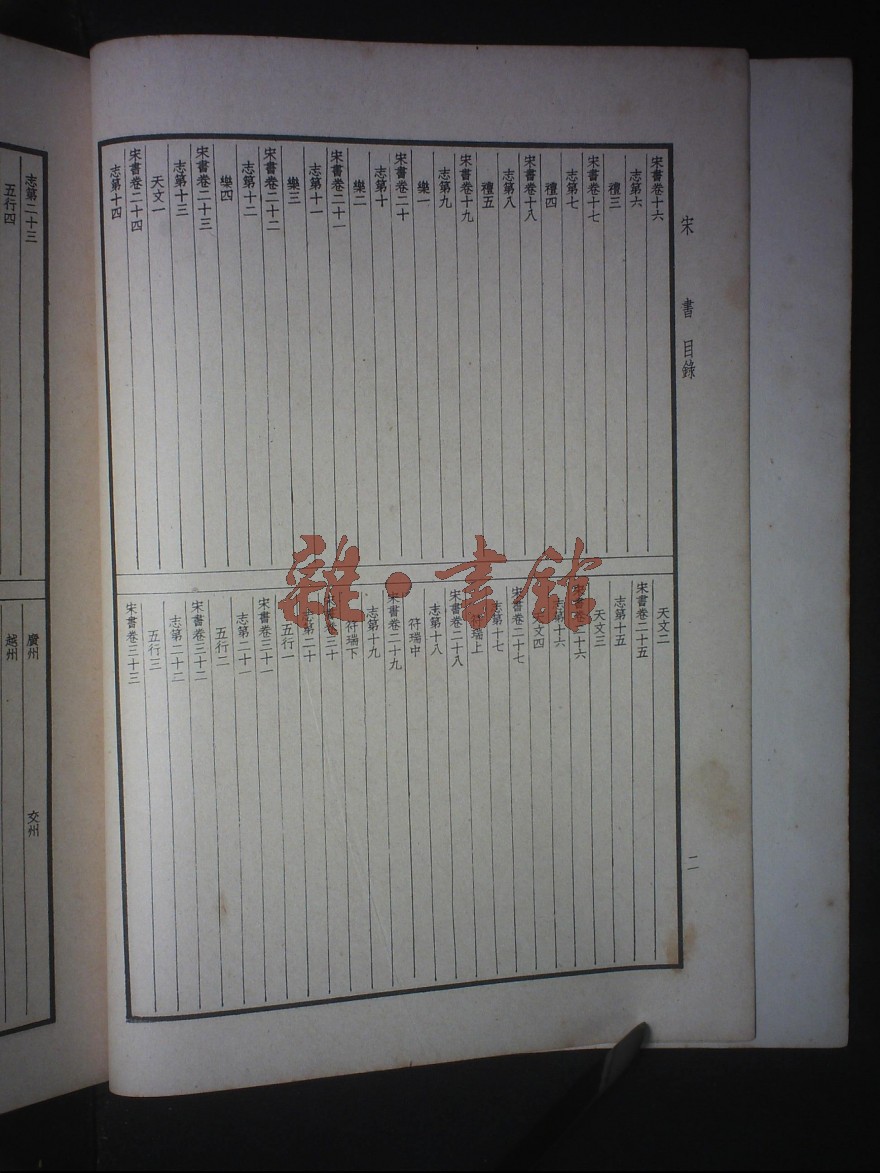 宋書 目錄
二
宋書卷十六
志第六
禮三
宋書卷十七
志第七
禮四
宋書卷十八
志第八
禮五
宋書卷十九
志第九
樂一
宋書卷二十
志第十
樂二
宋書卷二十一
志第十一
樂三
宋書卷二十二
志第十二
樂四
宋書卷二十三
志第十三
天文一
宋書卷二十四
志第十四
天文二
宋書卷二十五
志第十五
天文三
宋書卷二十六
志第十六
天文四
宋書卷二十七
志第十七
符瑞上
宋書卷二十八
志第十八
符瑞中
宋書卷二十九
志第十九
符瑞下
宋書卷三十
志第二十
五行一
宋書卷三十一
志第二十一
五行二
宋書卷三十二
志第二十二
五行三
宋書卷三十三
志第二十三
五行四
廣州 交州
越州
雜·書館